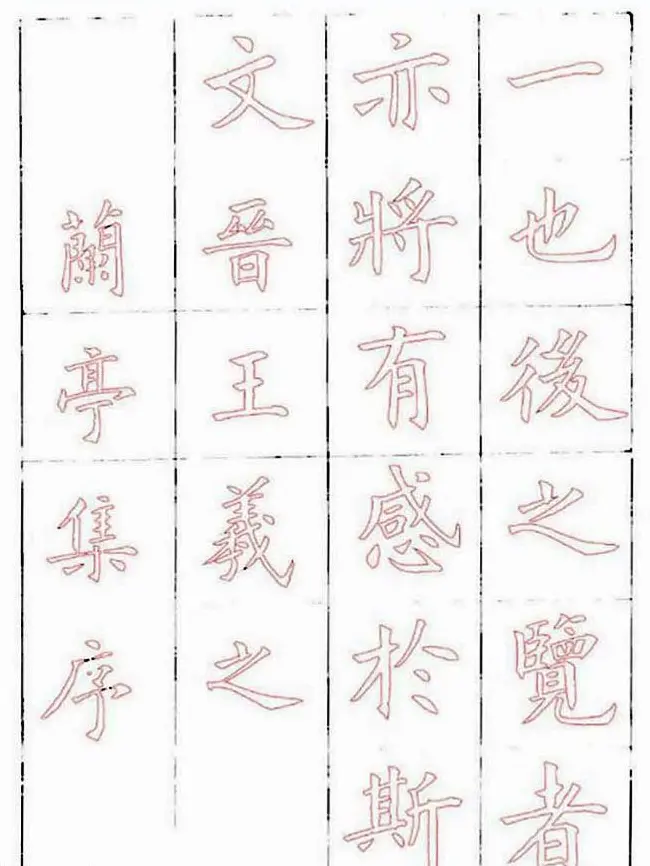 一也後之覽者
亦將有感於斯
文晉王羲之
蘭亭集序